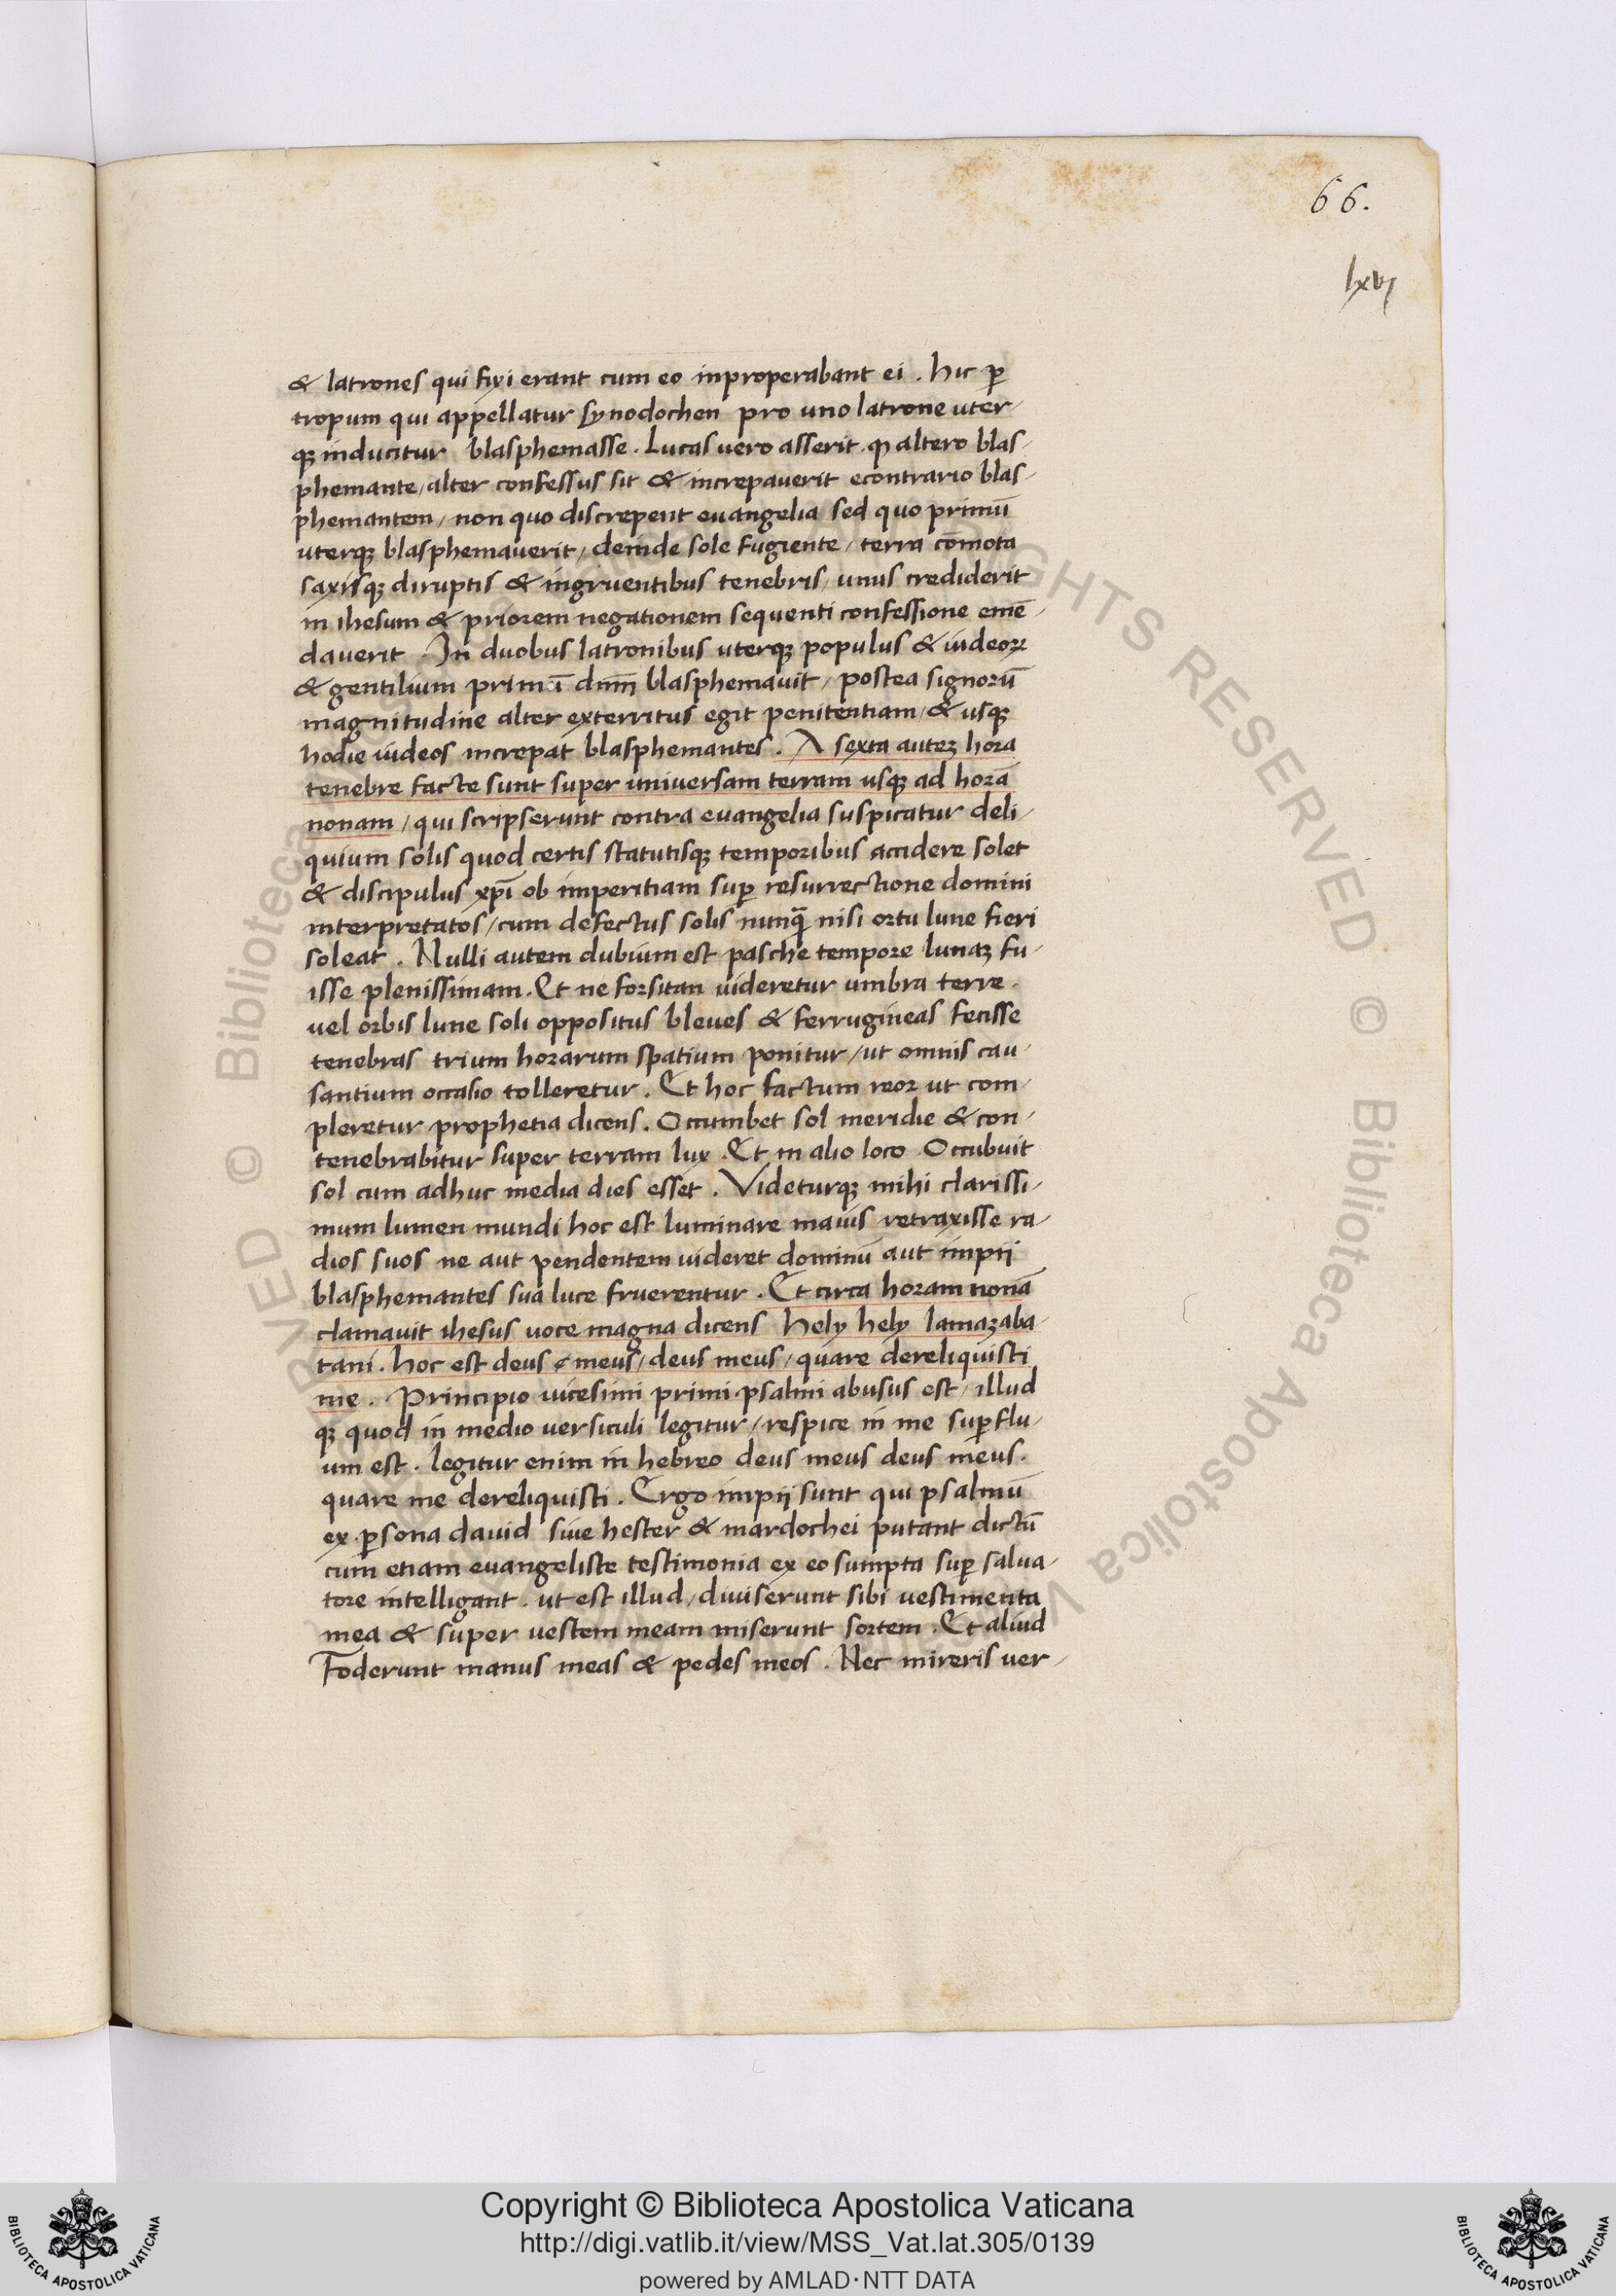 66.
lxvj
& latrones qui fixi erant cum eo inproperabant ei . hic ꝑ
tropum qui appellatur synodochen pro uno latrone uter-
qꝫ inducitur blasphemasse . Lucas uero asserit . ꝙ altero blas-
phemante / alter confessus sit & increpauerit econtrario blas-
phemantem / non quo discrepent euangelia sed quo primū
uterqꝫ blasphemauerit / deinde sole fugiente / terra cōmota
saxisqꝫ diruptis & ingruentibus tenebris / unus crediderit
in ihesum & priorem negationem sequenti confessione emē-
dauerit . In duobus latronibus uterqꝫ populus & iudeoꝝ
& gentilium primū dnm̄ blasphemauit / postea signorū
magnitudine alter exterritus egit penitentiam / & usqꝫ
hodie iudeos increpat blasphemantes . A sexta auteꝫ hora
tenebre facte sunt super uniuersam terram usqꝫ ad horā
nonam / qui scripserunt contra euangelia suspicatur deli-
quium solis quod certis statutisqꝫ temporibus accidere solet
& discipulus xp̄i ob imperitiam suꝑ resurrectione domini
interpretatos / cum defectus solis nunꝗ̄ nisi ortu lune fieri
soleat . Nulli autem dubium est pasche tempore lunaꝫ fu-
isse plenissimam . Et ne forsitan uideretur umbra terre .
uel orbis lune soli oppositus bleues & ferrugineas fecisse
tenebras trium horarum spatium ponitur / ut omnis cau-
santium occasio tolleretur . Et hoc factum reor ut com-
pleretur prophetia dicens . Occumbet sol meridie & con-
tenebrabitur super terram lux . Et in alio loco . Occubuit
sol cum adhuc media dies esset . Videturqꝫ mihi clarissi-
mum lumen mundi hoc est luminare maius retraxisse ra-
dios suos ne aut pendentem uideret dominū aut impii
blasphemantes sua luce fruerentur . Et circa horam nonā
clamauit ihesus uoce magna dicens hely hely lamazaba-
tani . hoc est deus meus / deus meus / quare dereliquisti
me . Principio uicesimi primi psalmi abusus est / illud
qꝫ quod in medio uersiculi legitur / respice in me suꝑflu-
um est . legitur enim in hebreo deus meus deus meus .
quare me dereliquisti . Ergo impii sunt qui psalmū
ex ꝑsona dauid siue hester & mardochei putant dictū
cum etiam euangeliste testimonia ex eo sumpta suꝑ salua-
tore intelligant . ut est illud / diuiserunt sibi uestimenta
mea & super uestem meam miserunt sortem . Et aliud
Foderunt manus meas & pedes meos . Nec mireris uer-
Copyright © Biblioteca Apostolica Vaticana
http://digi.vatlib.it/view/MSS_Vat.lat.305/0139
powered by AMLAD · NTT DATA